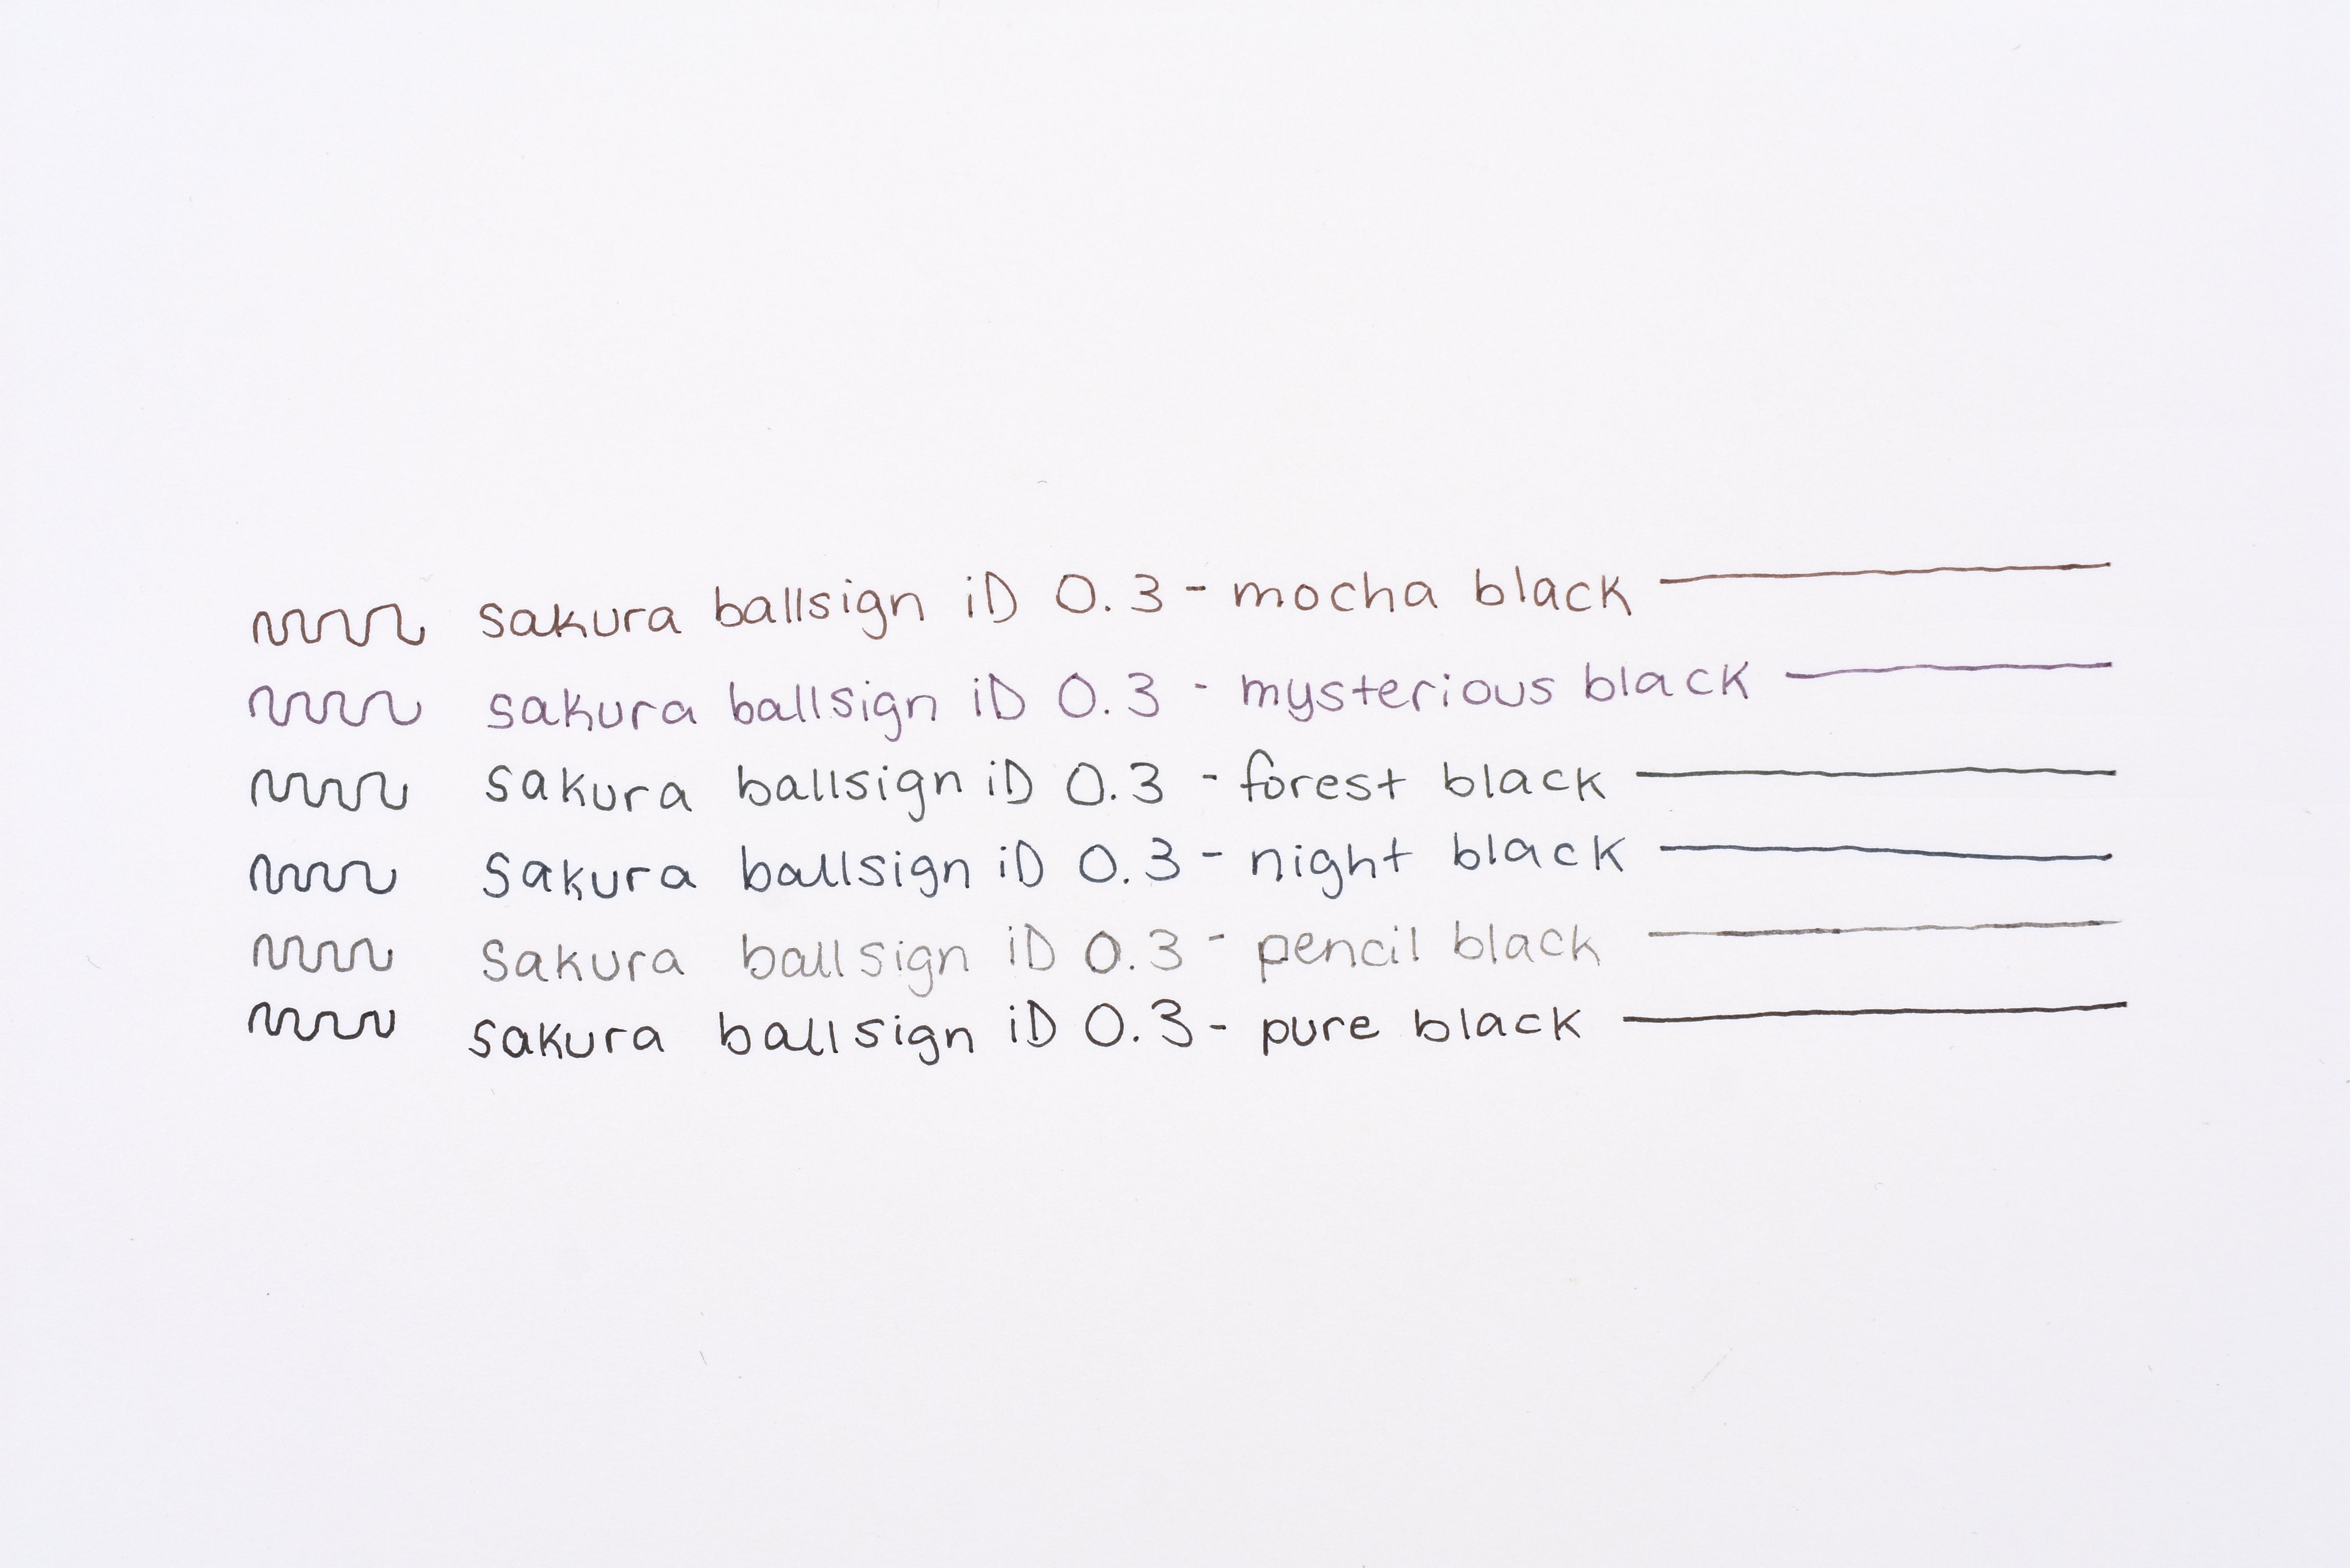 sakura ballsign iD 0.3 - mocha black
sakura ballsign iD 0.3 - mysterious black
sakura ballsign iD 0.3 - forest black
sakura ballsign iD 0.3 - night black
sakura ballsign iD 0.3 - pencil black
sakura ballsign iD 0.3 - pure black